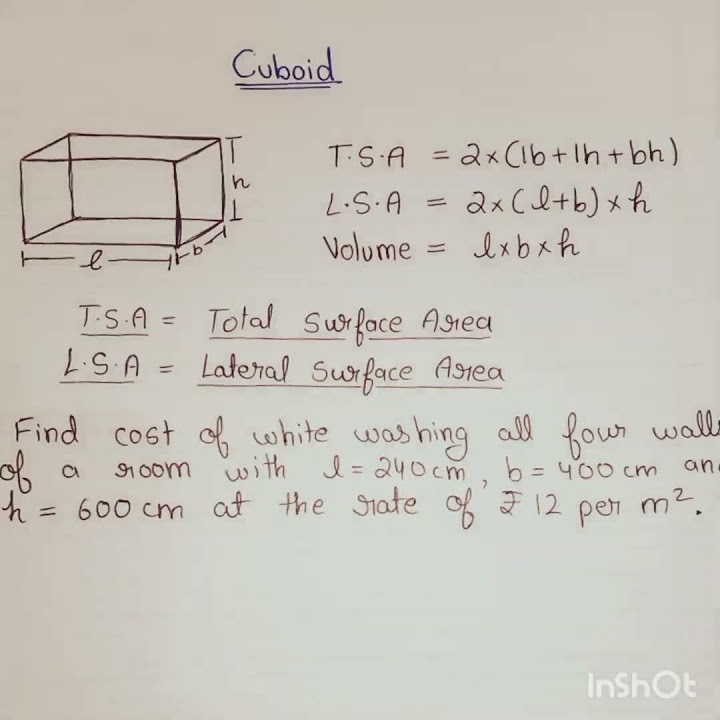 Cuboid
T.S.A = 2×(lb+lh+bh)
h
L.S.A = 2×(l+b)×h
b
l
Volume = l×b×h
T.S.A = Total Surface Area
L.S.A = Lateral Surface Area
Find cost of white washing all four walls
of a room with l = 240cm, b = 400 cm and
h = 600 cm at the rate of ₹ 12 per m².
InShOt